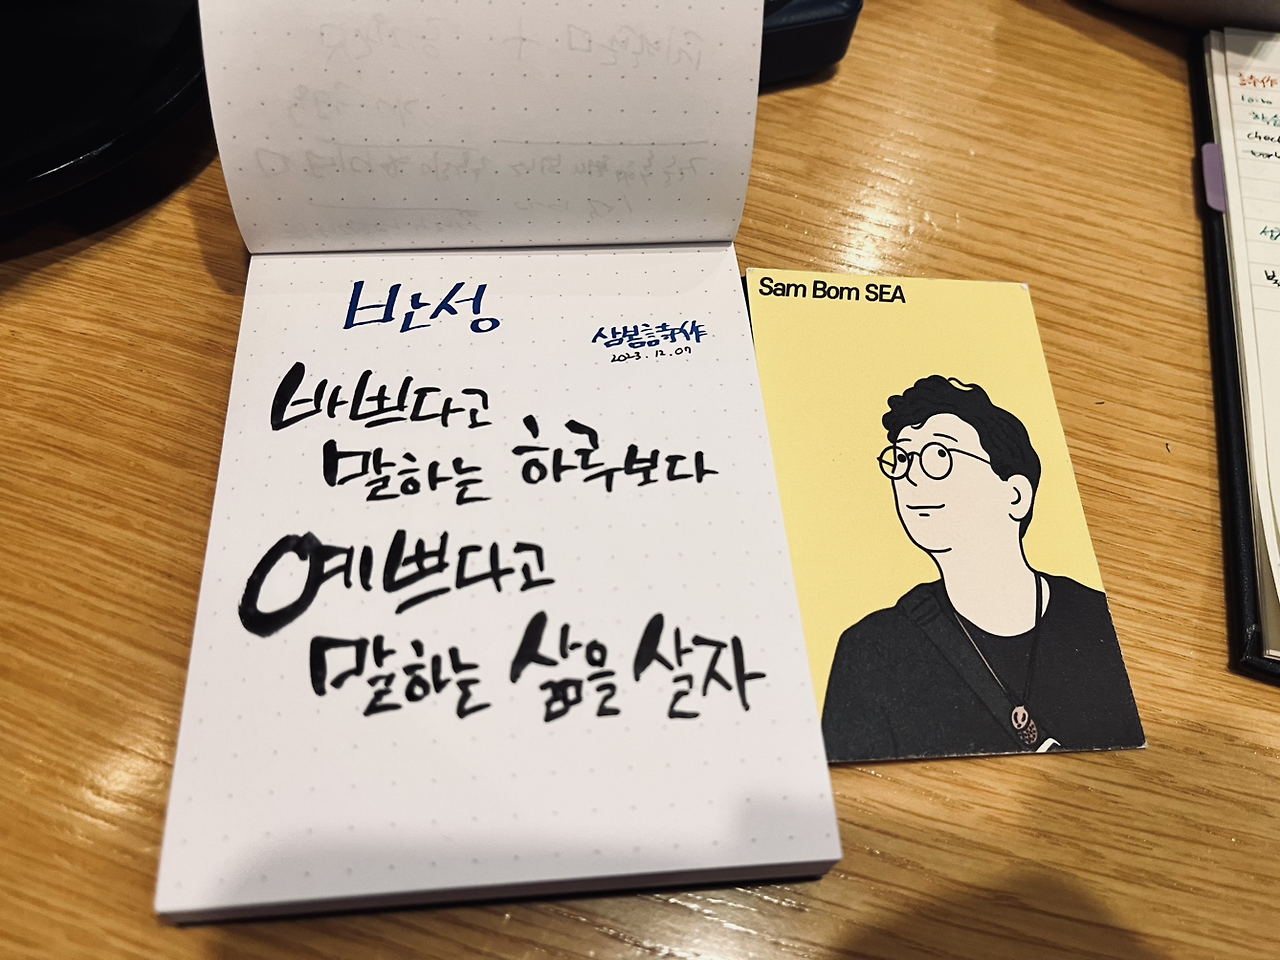 반성
삼봄詩作
2023. 12. 07
바쁘다고
말하는 하루보다
예쁘다고
말하는 삶을 살자
Sam Bom SEA
詩作
check